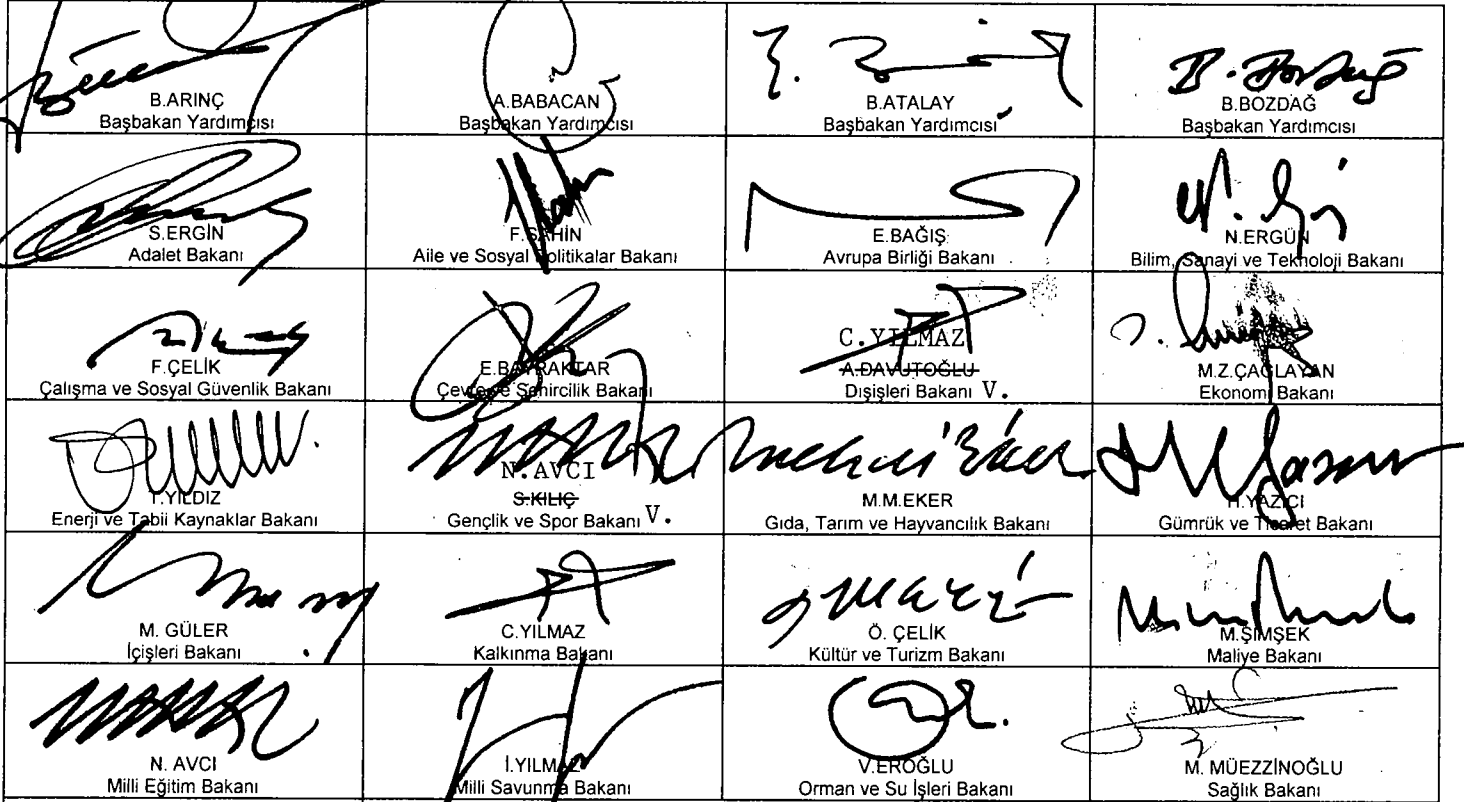 B.ARINÇ
Başbakan Yardımcısı
A.BABACAN
Başbakan Yardımcısı
B.ATALAY
Başbakan Yardımcısı
B.BOZDAĞ
Başbakan Yardımcısı
S.ERGİN
Adalet Bakanı
F.ŞAHİN
Aile ve Sosyal Politikalar Bakanı
E.BAĞIŞ
Avrupa Birliği Bakanı
N.ERGÜN
Bilim, Sanayi ve Teknoloji Bakanı
F.ÇELİK
Çalışma ve Sosyal Güvenlik Bakanı
E.BAYRAKTAR
Çevre ve Şehircilik Bakanı
C.YILMAZ
A.DAVUTOĞLU
Dışişleri Bakanı V.
M.Z.ÇAĞLAYAN
Ekonomi Bakanı
T.YILDIZ
Enerji ve Tabii Kaynaklar Bakanı
N.AVCI
S.KILIÇ
Gençlik ve Spor Bakanı V.
M.M.EKER
Gıda, Tarım ve Hayvancılık Bakanı
H.YAZICI
Gümrük ve Ticaret Bakanı
M. GÜLER
İçişleri Bakanı
C.YILMAZ
Kalkınma Bakanı
Ö. ÇELİK
Kültür ve Turizm Bakanı
M.ŞİMŞEK
Maliye Bakanı
N. AVCI
Milli Eğitim Bakanı
İ.YILMAZ
Milli Savunma Bakanı
V.EROĞLU
Orman ve Su İşleri Bakanı
M. MÜEZZİNOĞLU
Sağlık Bakanı